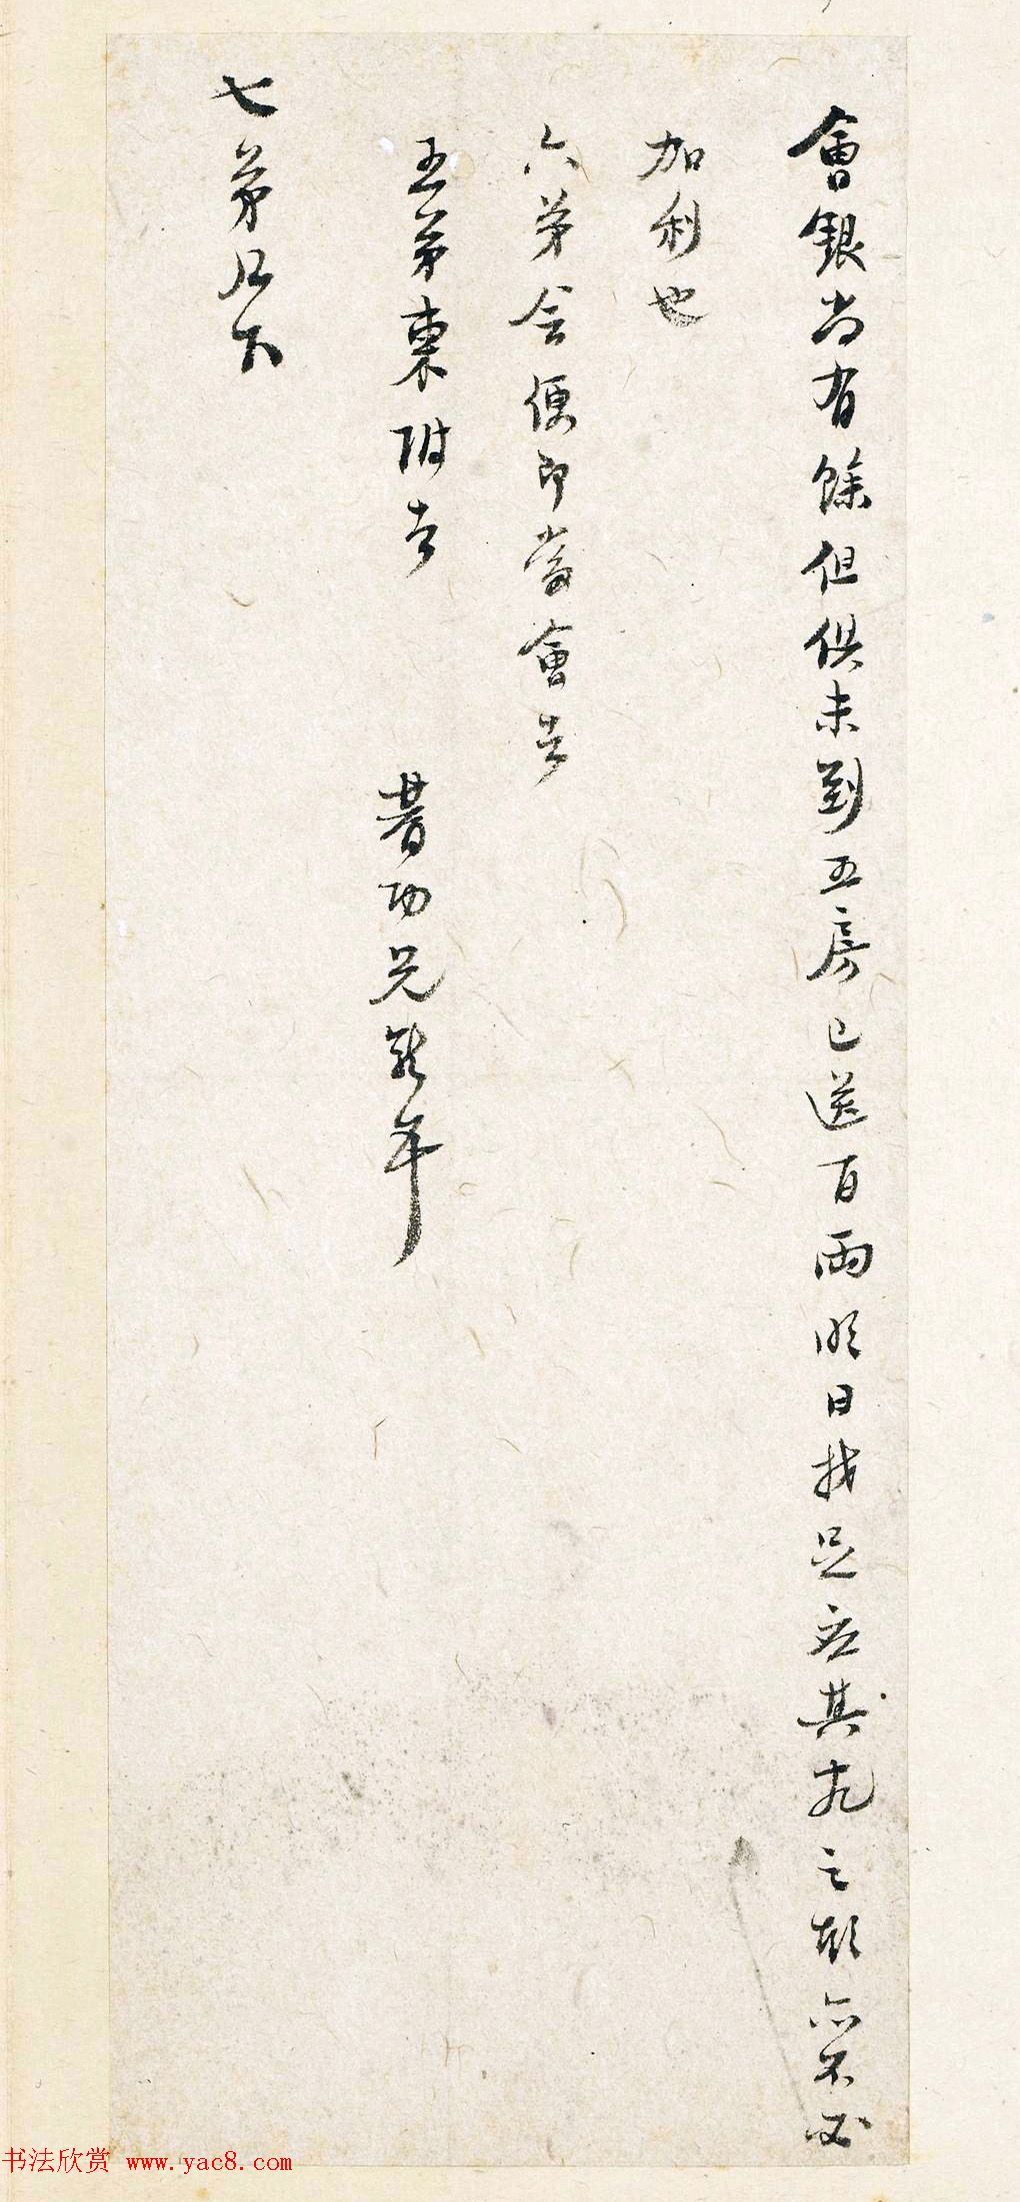 會銀尚有餘但俱未到五房已送百兩明日找足應其九之數亦不必
加利也
六弟會便即當會去
五弟柬附去
期功兄龍年
七弟足下
书法欣赏 www.yac8.com